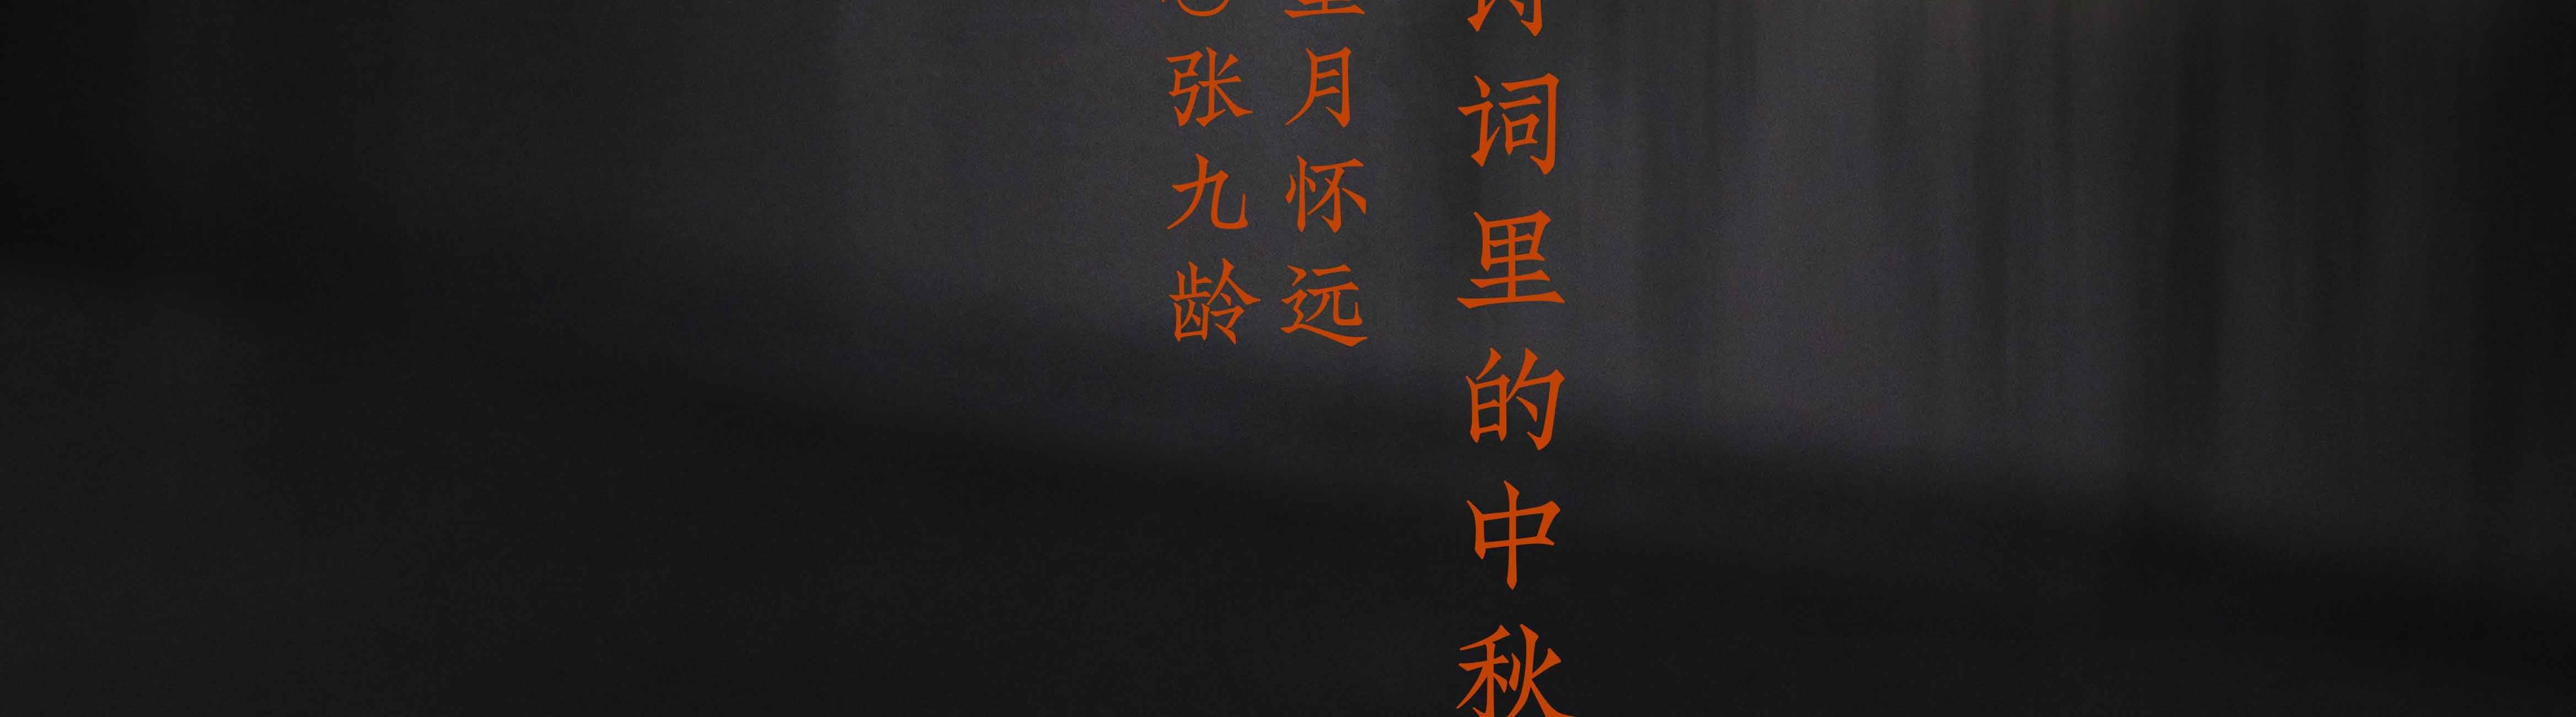 诗词里的中秋
望月怀远
张九龄